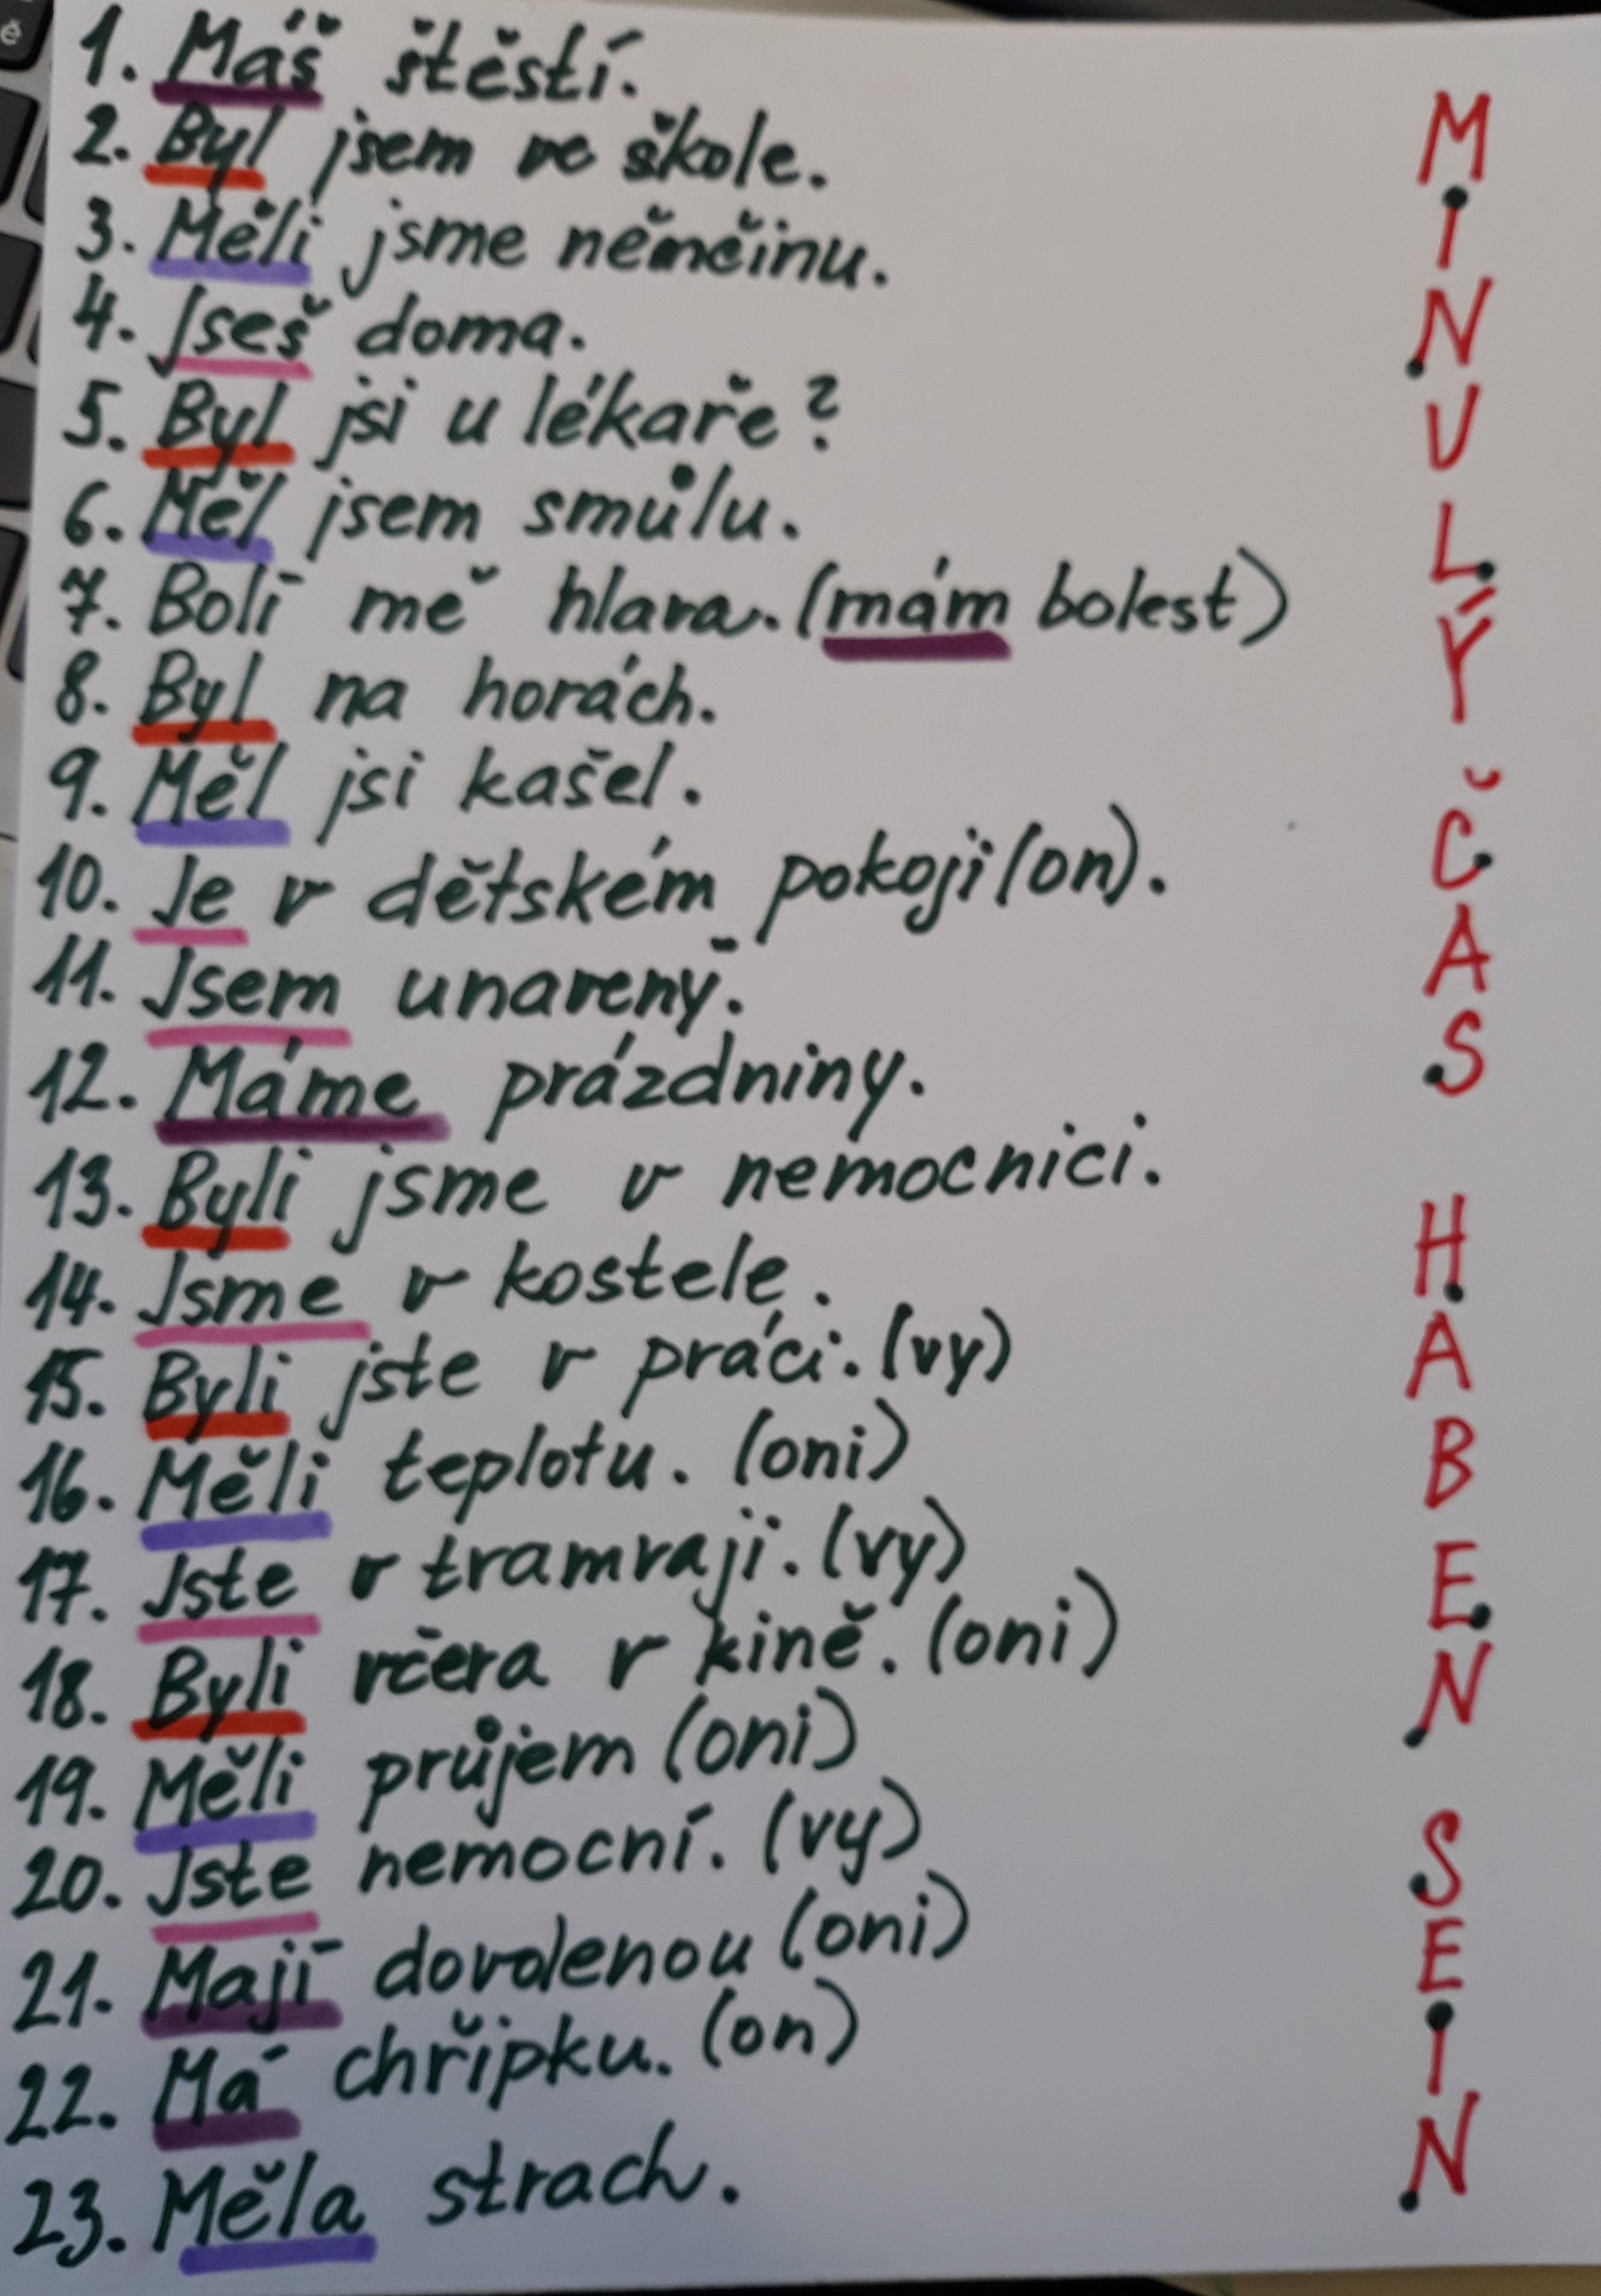 1. Máš štěstí.
2. Byl jsem ve škole.
3. Měli jsme němčinu.
4. Jseš doma.
5. Byl jsi u lékaře?
6. Měl jsem smůlu.
7. Bolí mě hlava. (mám bolest)
8. Byl na horách.
9. Měl jsi kašel.
10. Je v dětském pokoji (on).
11. Jsem unavený.
12. Máme prázdniny.
13. Byli jsme v nemocnici.
14. Jsme v kostele.
15. Byli jste v práci. (vy)
16. Měli teplotu. (oni)
17. Jste v tramvaji. (vy)
18. Byli včera v kině. (oni)
19. Měli průjem (oni)
20. Jste nemocní. (vy)
21. Mají dovolenou (oni)
22. Má chřipku. (on)
23. Měla strach.
MINULÝ ČAS HABEN SEIN
ě